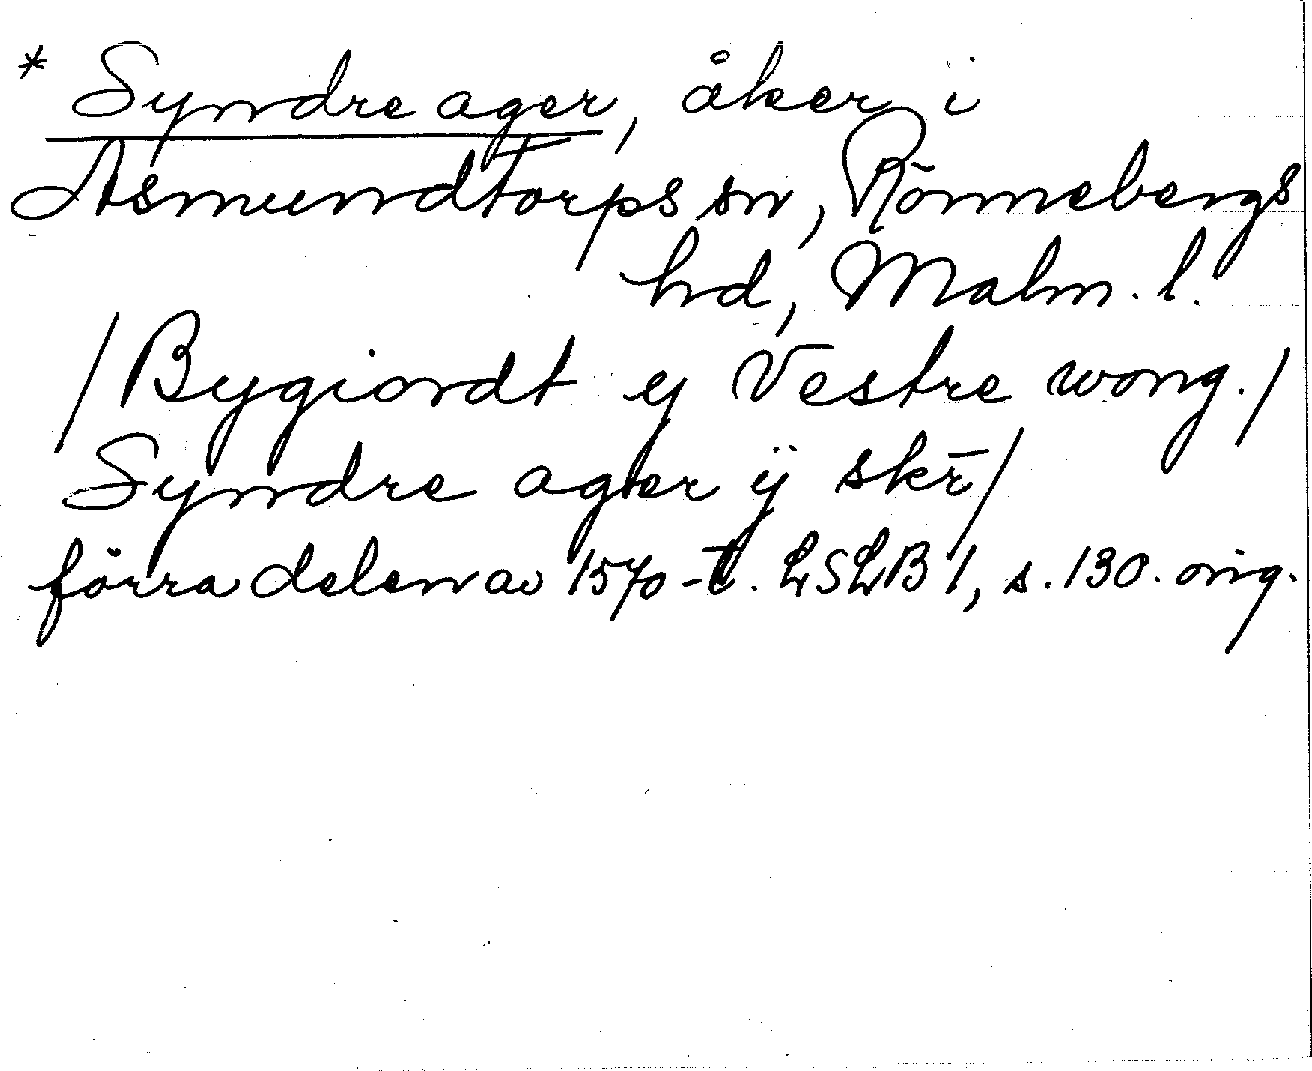 * Syndre ager, åker i
Asmundtorps sn, Rönnebergs
hd, Malm. l.
/Bygiordt ij Vestre wong./
Syndre ager ÿ skr̄/
förra delen av 1570-t. LSLB 1, s. 130. orig.